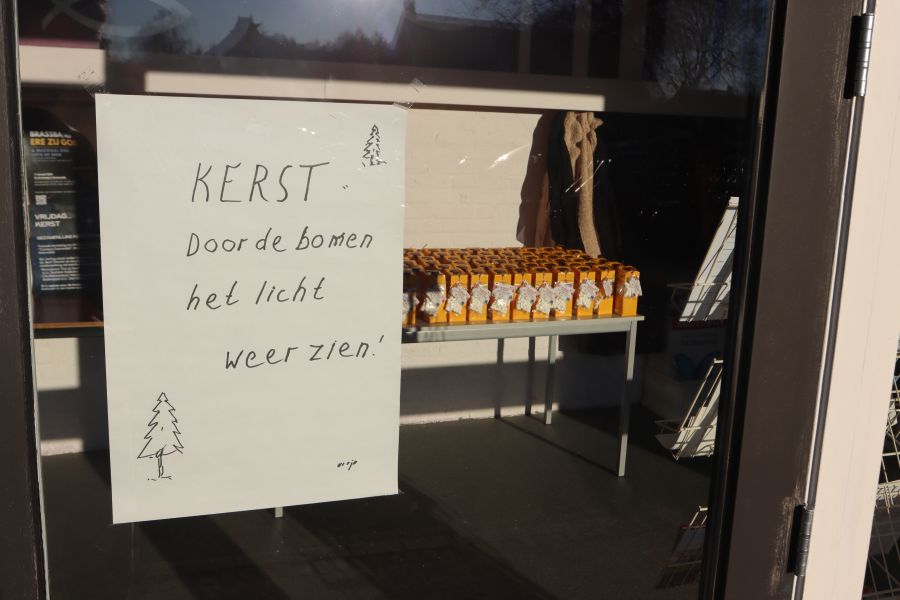 KERST
Door de bomen
het licht
weer zien!
BRASSBA
ERE ZIJ GO
VRIJDAG
KERST